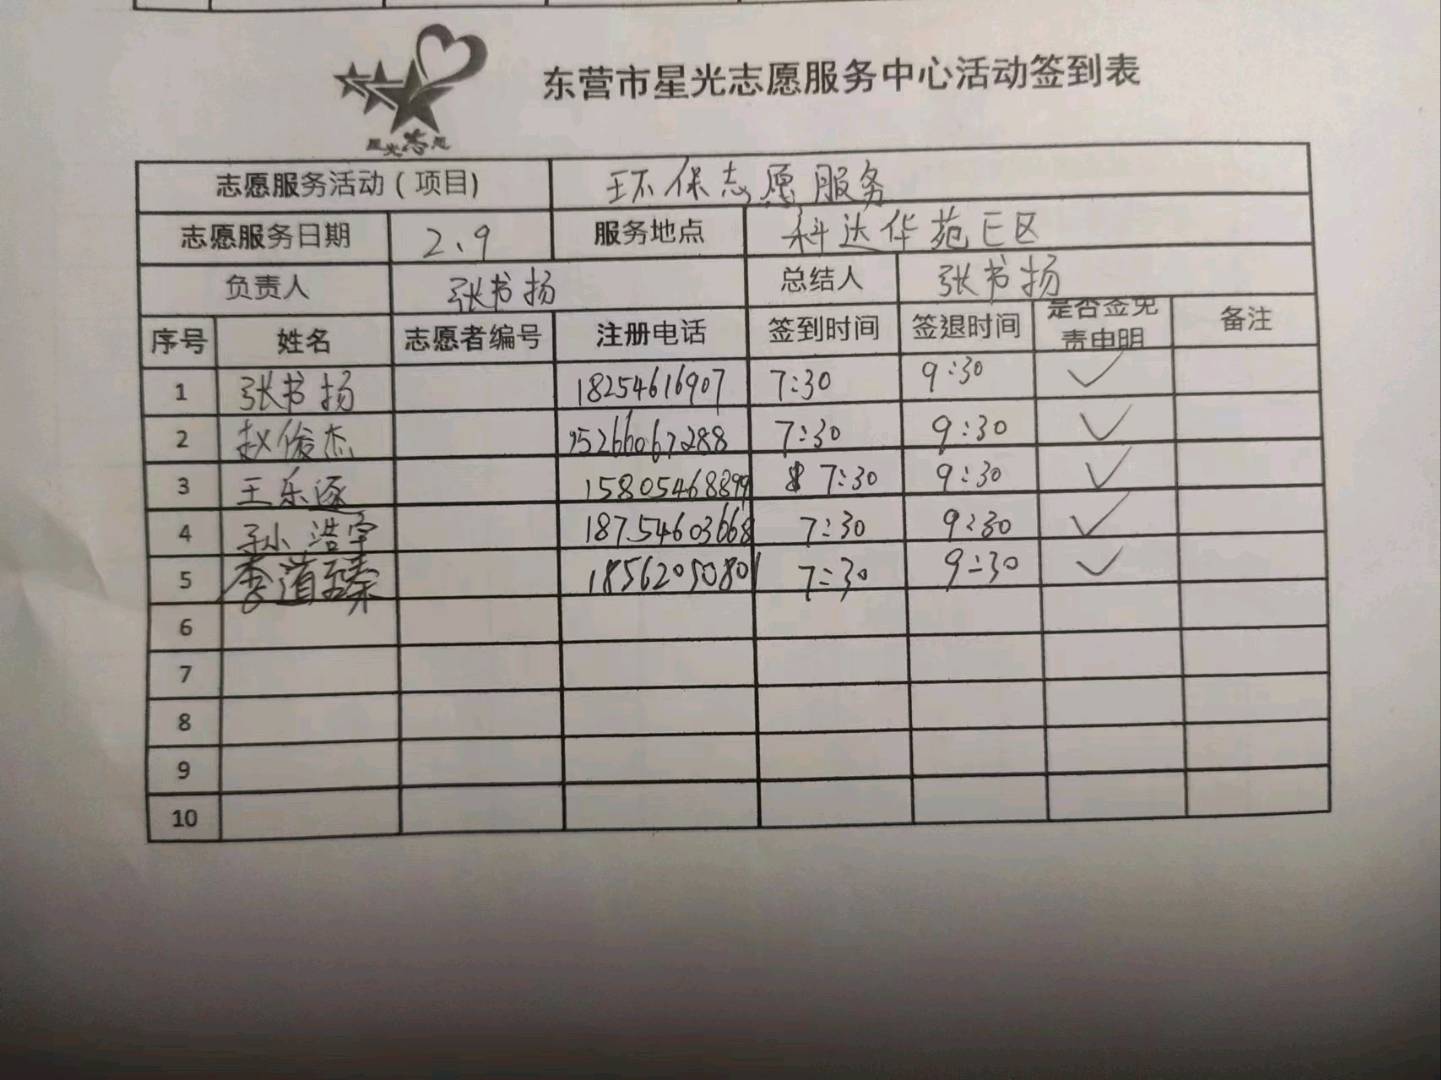 星光志愿
东营市星光志愿服务中心活动签到表
志愿服务活动(项目) 环保志愿服务
志愿服务日期 2、9 服务地点 科达华苑E区
负责人 张书扬 总结人 张书扬
序号 姓名 志愿者编号 注册电话 签到时间 签退时间 是否签免责申明 备注
1 张书扬 18254616907 7:30 9:30 ✓
2 赵俊杰 15266067288 7:30 9:30 ✓
3 王乐逐 15805468899 7:30 9:30 ✓
4 孙浩宇 18754603668 7:30 9:30 ✓
5 李道臻 18562050801 7:30 9:30 ✓
6
7
8
9
10